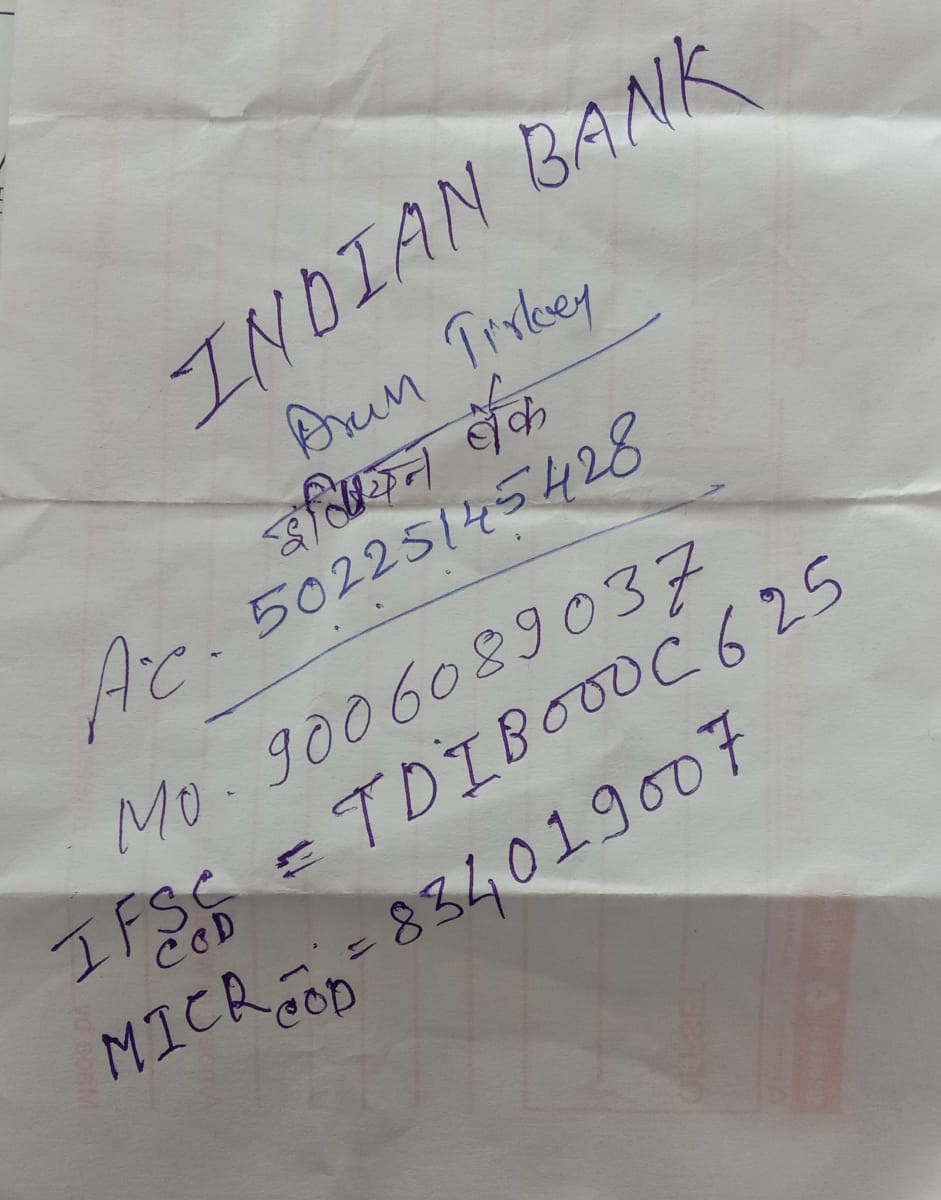 INDIAN BANK
Arun Tirkey
इण्डियन बैंक
Ac. 50225145428
Mo. 9006089037
IFSC COD = TDIB000C625
MICR COD = 834019007